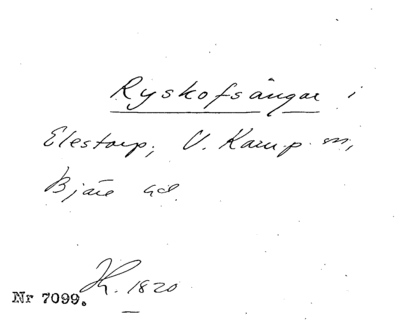 Ryskofsängar i
Elestorp, V. Karup sn,
Bjäre hd.
K. 1820
Nr 7099.